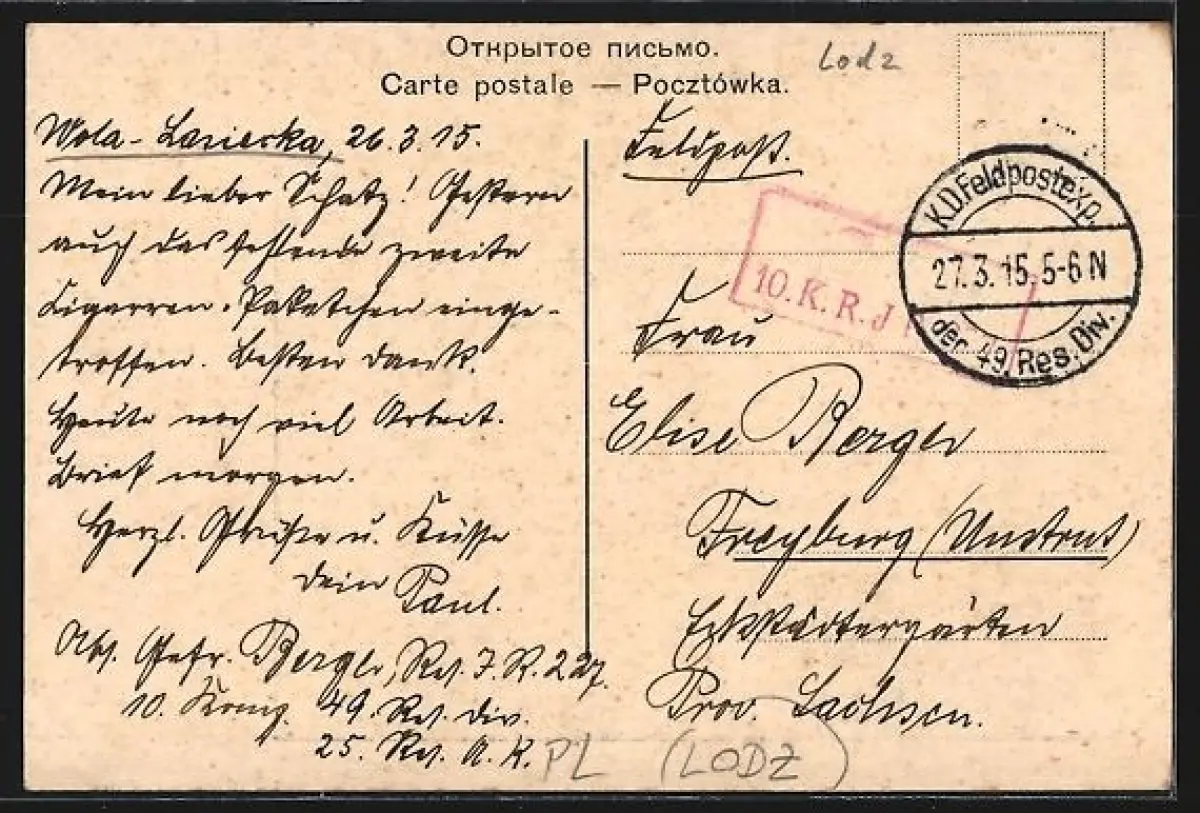 Открытое письмо.
Carte postale — Pocztówka.
Lodz
Wola-Lasiecka, 26.3.15.
Mein lieber Schatz! Gestern
auch das fehlende zweite
Zigarren-Paketchen einge-
troffen. Besten Dank.
Heute noch viel Arbeit.
Brief morgen.
Herzl. Grüße u. Küsse
Dein Paul.
Abs. Gefr. Berger, Res. J. R. 227.
10. Komp. 49. Res. Div.
25. Res. A. K.
Feldpost.
Frau
Elise Berger
Freyburg (Unstrut)
Prov. Sachsen.
K.D.Feldpostexp.
27.3.15.5-6N
der 49. Res. Div.
10. K. R. J
PL (LODZ)